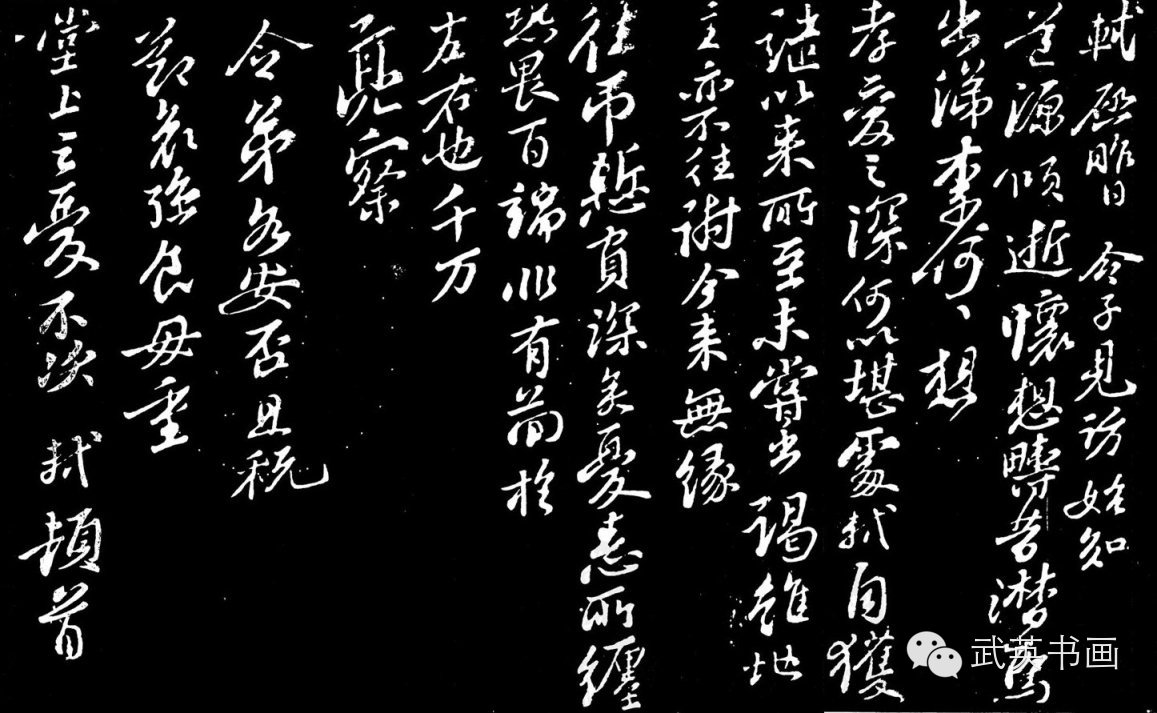 軾啟昨日令子見訪始知
道源傾逝懷想疇昔潸焉
出涕奈何、想
孝愛之深何以堪處軾自獲
譴以來所至未嘗出謁雖地
主亦不往謝今來無緣
往弔慙負深矣憂患所纏
恐畏百端非有簡於
左右也千万
亮察
令弟各安否且税
節哀強食毋重
堂上之憂不次 軾頓首
武英书画